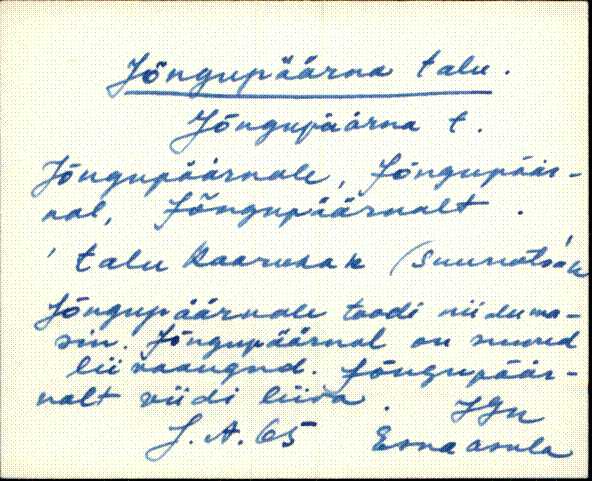 Jõngupäärna talu.
Jõngupäärna t.
Jõngupäärnale, Jõngupäär-
nal, Jõngupäärnalt.
talu
Jõngupäärnale toodi niiduma-
sin. Jõngupäärnal on suured
liivaaugud. Jõngupäär-
nalt viidi liiva.
JGn
J. A. 65 Esna asula